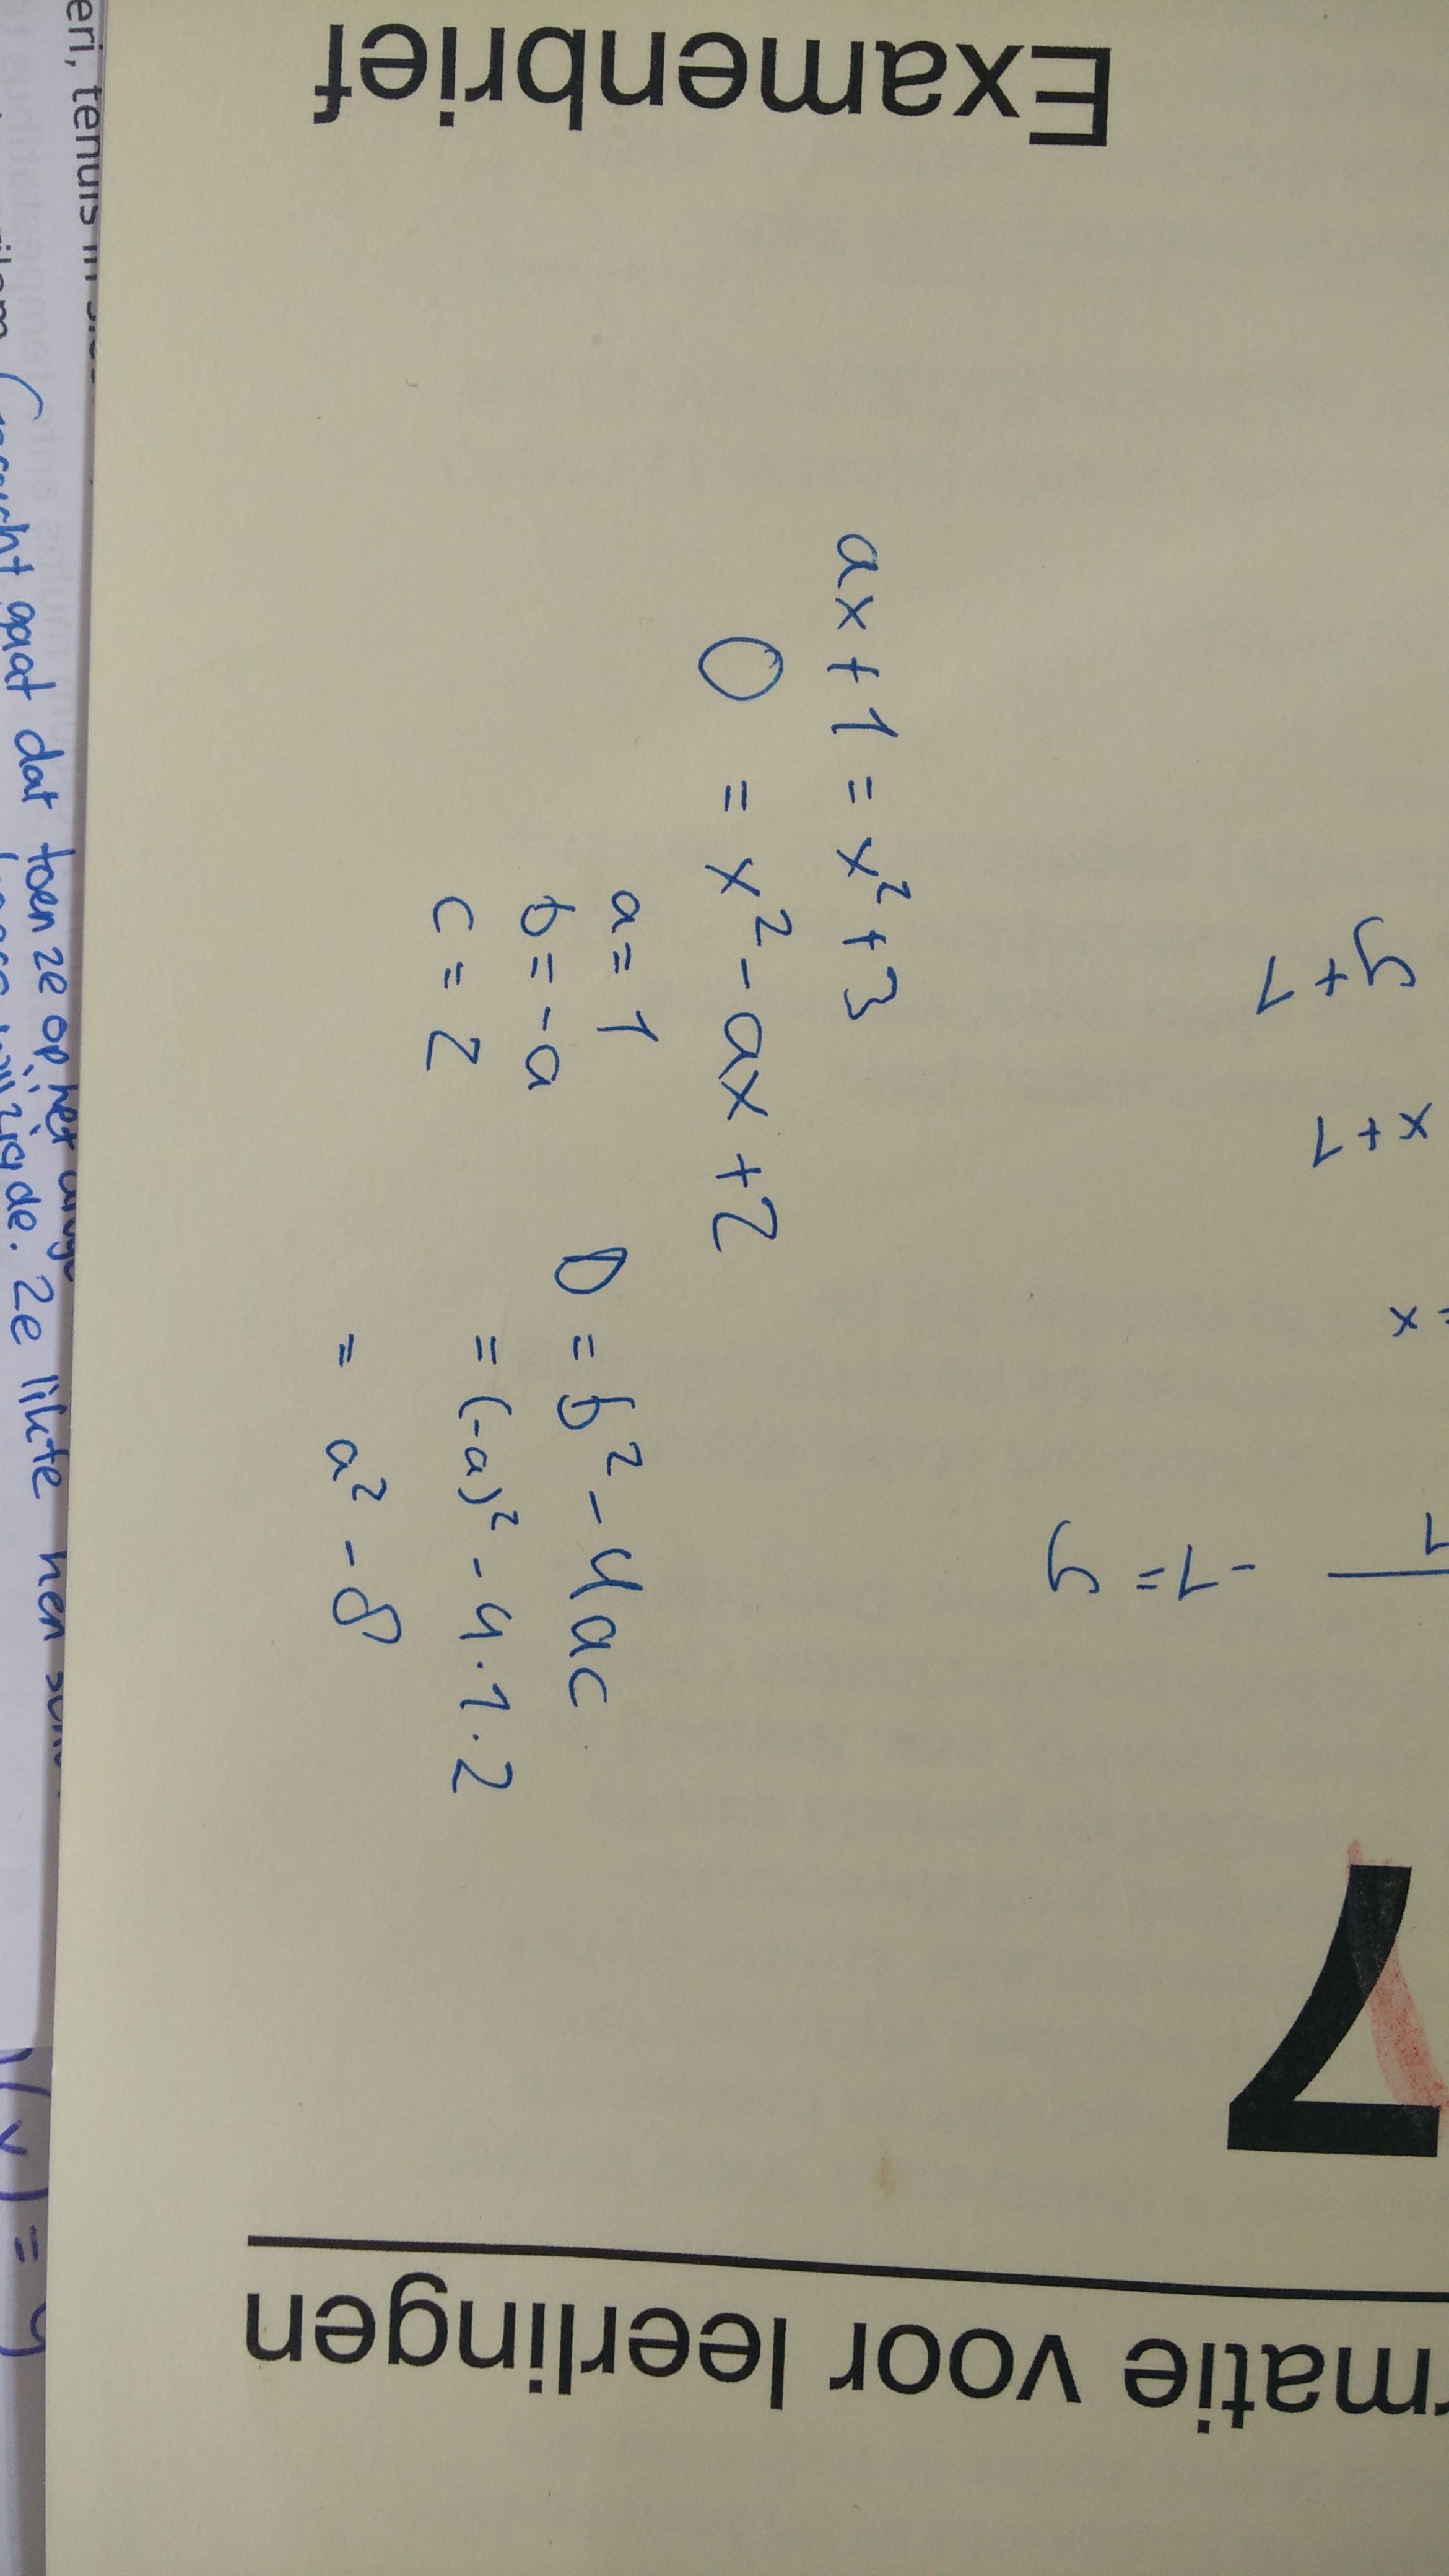 Examenbrief
ax + 1 = x² + 3
0 = x² - ax + 2
a = 1
b = -a
c = 2
D = b² - 4ac
= (-a)² - 4·1·2
= a² - 8
y + 1
x + 1
x
-1 = y
7
matie voor leerlingen
eri, tenuis in
gaat dat toen ze op het
zigde. Ze likte hen
) = y